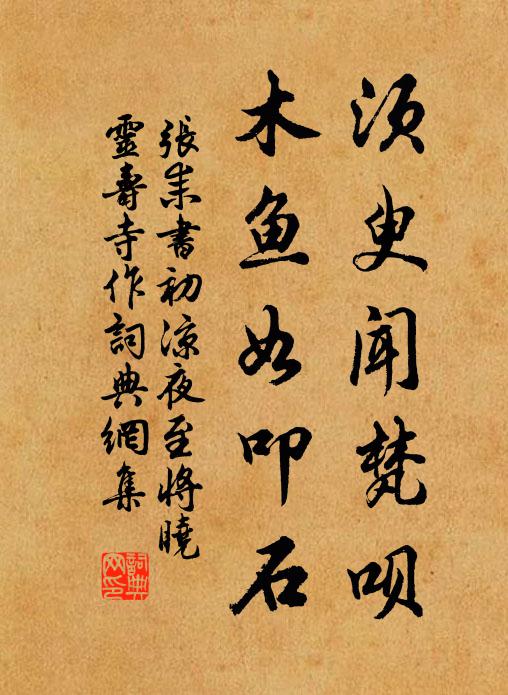 须叟闻梵呗
木鱼如叩石
張耒書初涼夜至將曉
靈壽寺作詞典網集
詞典网印